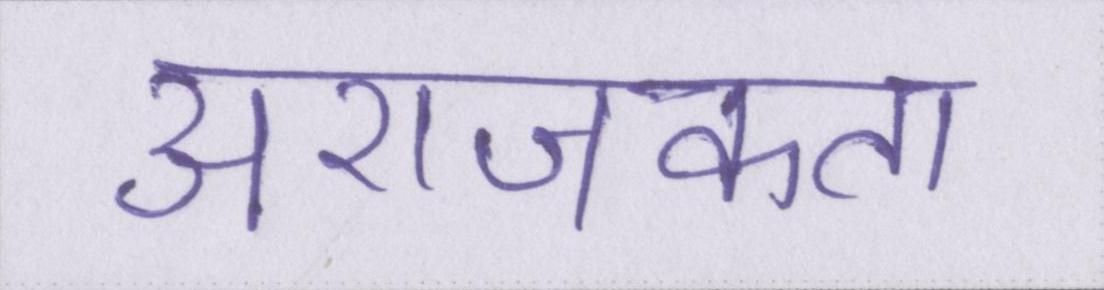 अराजकता